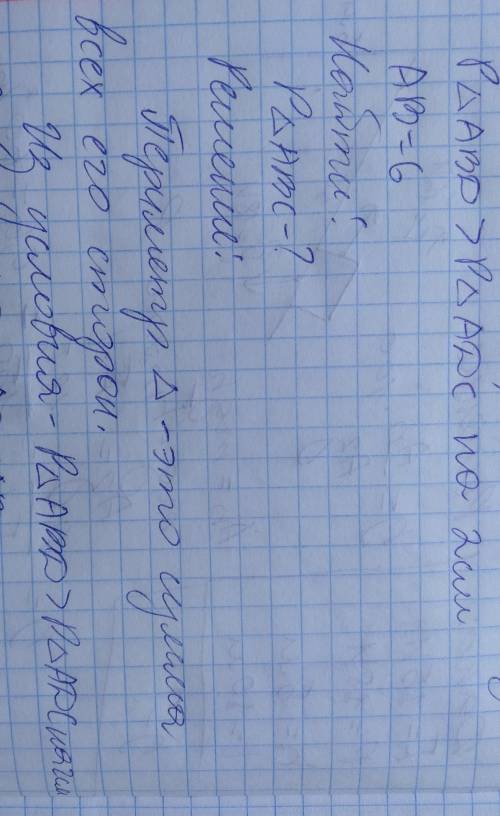 P△ABD > P△ADC на 2см
AB=6
Найти:
P△ABC-?
Решение:
Периметр △ -это сумма
всех его сторон.
Из условия- P△ABD > P△ADC на 2см